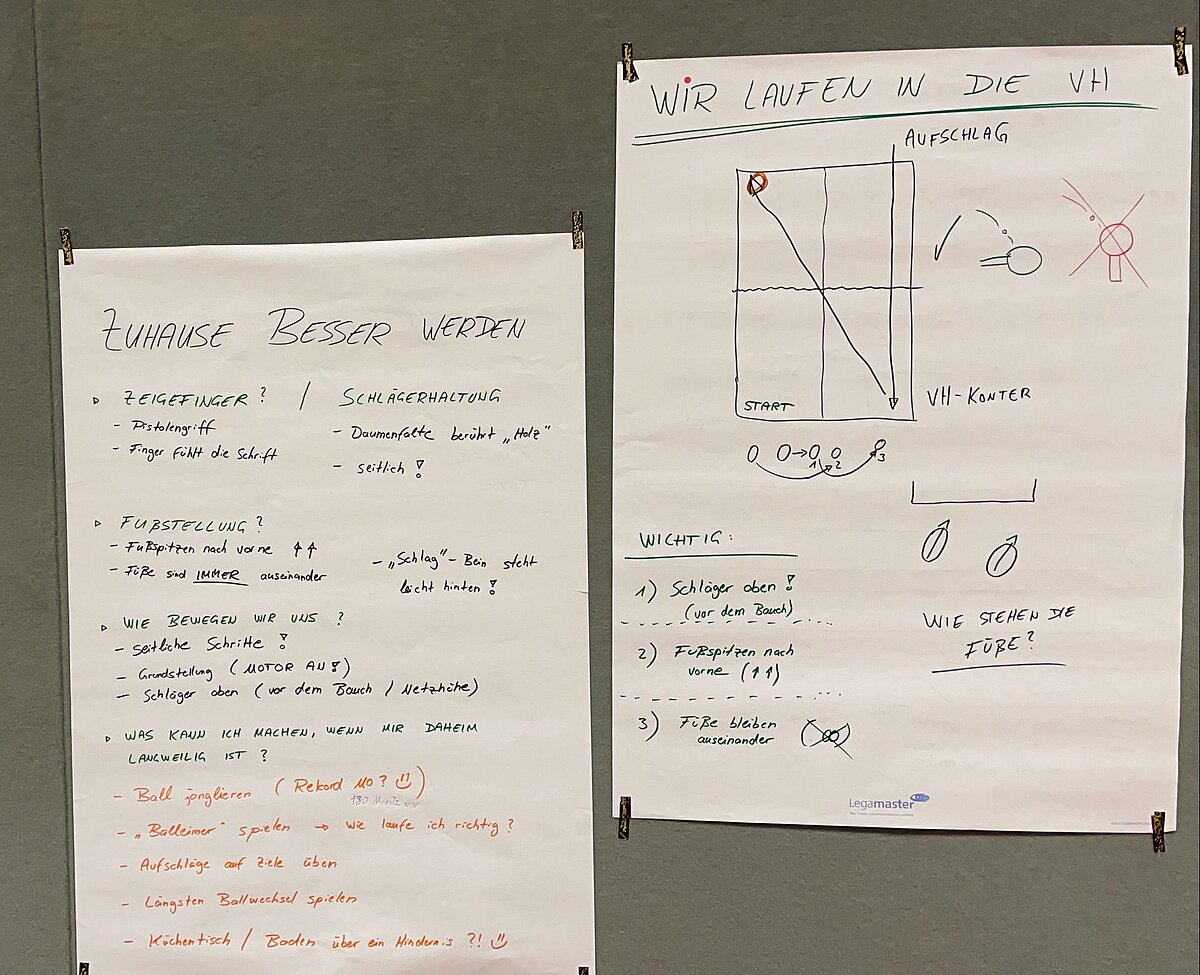 ZUHAUSE BESSER WERDEN
▹ ZEIGEFINGER? / SCHLÄGERHALTUNG
- Pistolengriff
- Finger fühlt die Schrift
- Daumenfalte berührt „Holz"
- seitlich !
▹ FUßSTELLUNG?
- Fußspitzen nach vorne ↑↑
- Füße sind IMMER auseinander
- „Schlag"-Bein steht
leicht hinten !
▹ WIE BEWEGEN WIR UNS ?
- seitliche Schritte !
- Grundstellung (MOTOR AN!)
- Schläger oben (vor dem Bauch / Netzhöhe)
▹ WAS KANN ICH MACHEN, WENN MIR DAHEIM
LANGWEILIG IST ?
- Ball jonglieren (Rekord 110? ☺)
180 Moritz
- „Balleimer" spielen → wie laufe ich richtig?
- Aufschläge auf Ziele üben
- Längsten Ballwechsel spielen
- Küchentisch / Boden über ein Hindernis ?! ☺
WIR LAUFEN IN DIE VH
AUFSCHLAG
START
VH-KONTER
1 2 3
WICHTIG:
1) Schläger oben !
(vor dem Bauch)
2) Fußspitzen nach
vorne (↑↑)
3) Füße bleiben
auseinander
WIE STEHEN DIE
FÜßE?
Legamaster